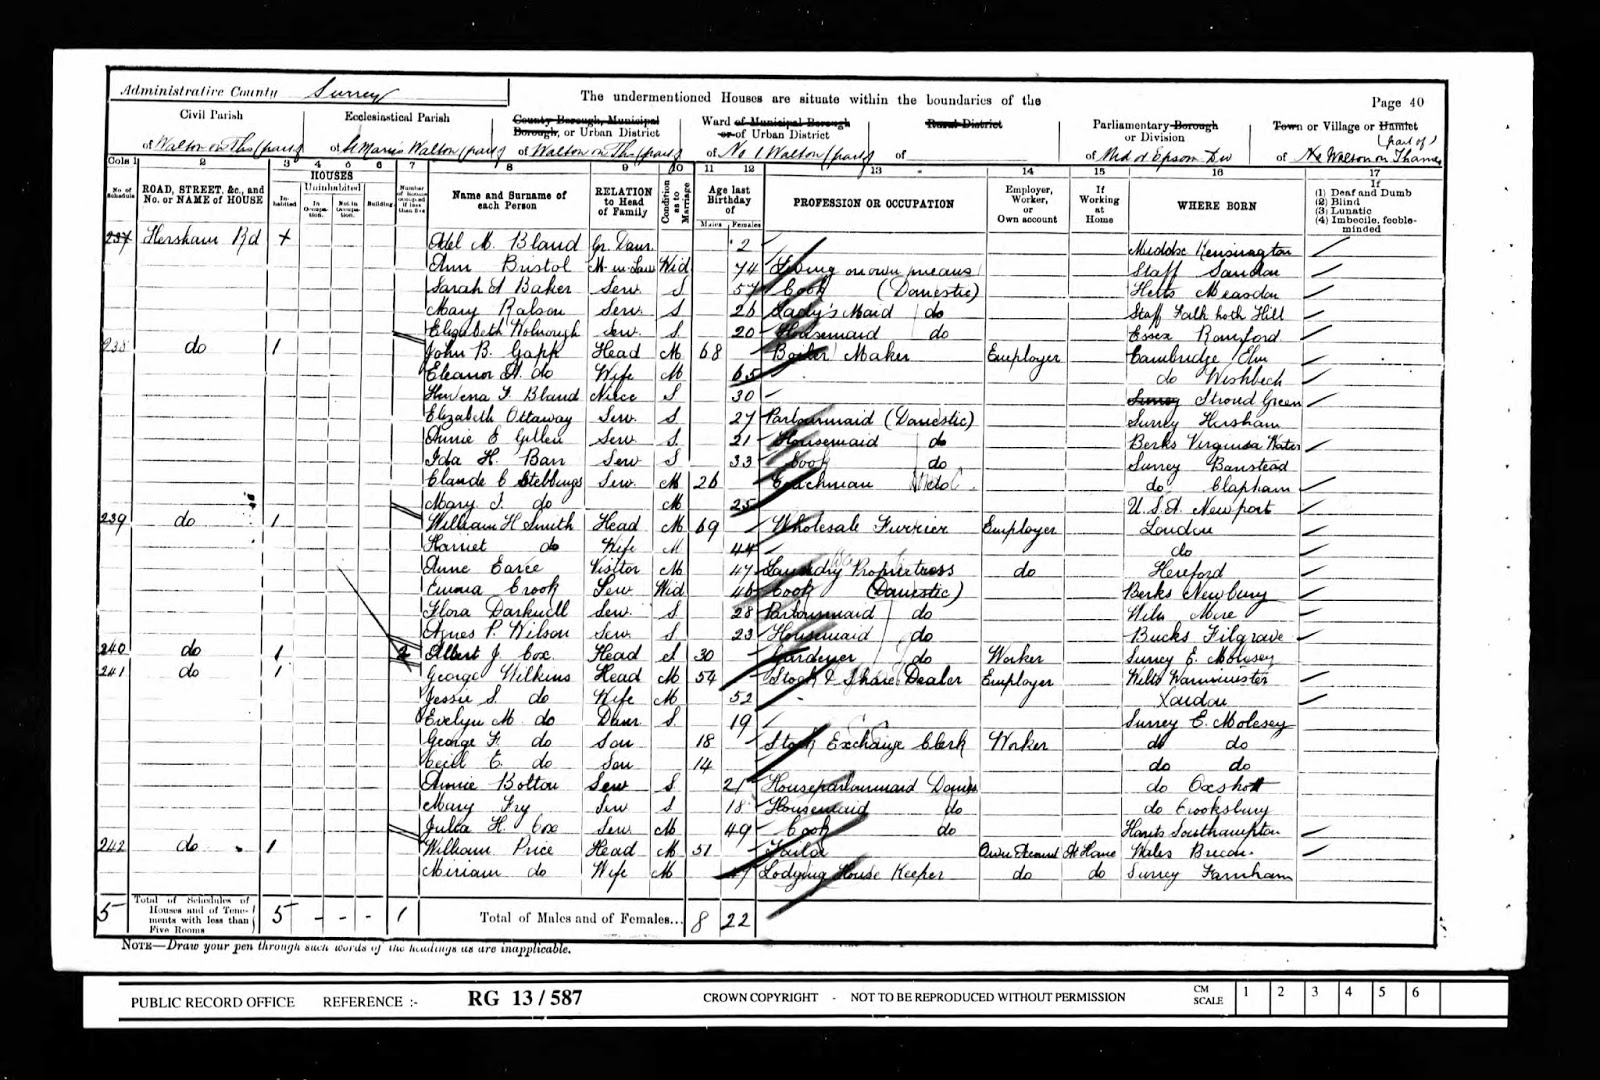 Administrative County Surrey
The undermentioned Houses are situate within the boundaries of the
Page 40
Civil Parish
of Walton on Ths (part of)
Ecclesiastical Parish
of St Marys Walton (part of)
County Borough, Municipal
Borough, or Urban District
of Walton on Ths (part of)
Ward of Municipal Borough
or of Urban District
of No 1 Walton (part of)
Rural District
of
Parliamentary Borough
or Division
of Mid or Epsom Div
Town or Village or Hamlet
(part of)
of Walton on Thames
Cols 1 2 3 4 5 6 7 8 9 10 11 12 13 14 15 16 17
No. of Schedule
ROAD, STREET, &c., and
No. or NAME of HOUSE
HOUSES
Inhabited
Uninhabited
In Occupation.
Not in Occupation.
Building
Number of Rooms occupied if less than five
Name and Surname of
each Person
RELATION
to Head
of Family
Condition as to Marriage
Age last
Birthday
of
Males Females
PROFESSION OR OCCUPATION
Employer,
Worker,
or
Own account
If
Working
at
Home
WHERE BORN
If
(1) Deaf and Dumb
(2) Blind
(3) Lunatic
(4) Imbecile, feeble-
minded
237 Hersham Rd x M. Bland Gr. Daur 2 Middx Kensington
Ann Bristol M-in-Law Wid 74 Living on own means Staff Sandon
Sarah A Baker Serv S 57 Cook (Domestic) Herts
Mary Ralson Serv S 26 Lady's Maid do Staff Hill
Elizabeth Serv. S 20 Housemaid do Essex Romford
238 do 1 John B. Gapp Head M 68 Boiler Maker Employer Cambridge Elm
Eleanor A. do Wife M 65 do Wishbech
F. Bland Niece S 30 Surrey Stroud Green
Elizabeth Ottaway Serv. S 27 Parlourmaid (Domestic) Surrey Hersham
Annie E Serv S 21 Housemaid do Berks Virginia Water
Ida H. Barr Serv S 33 Cook do Surrey Banstead
Claude C Stebbings Serv. M 26 Coachman do Clapham
Mary J. do M 25 U.S.A Newport
239 do 1 William H Smith Head M 69 Wholesale Furrier Employer London
Harriet do Wife M 44 do
Anne Visitor M 47 Laundry Proprietress do Hereford
Emma Crook Serv Wid 46 Cook (Domestic) Berks Newbury
Flora Darknell Serv. S 28 Parlourmaid do Wilts Mere
Agnes P. Wilson Serv. S 23 Housemaid do Bucks Filgrave
240 do 1 2 Albert J Cox Head S 30 Gardener do Worker Surrey E. Molesey
241 do 1 George Wilkins Head M 54 Stock & Share Dealer Employer Wilts Warminster
Jessie S. do Wife M 52 London
Evelyn M do Daur S. 19 Surrey E. Molesey
George F. do Son 18 Stock Exchange Clerk Worker do do
Cecil E. do Son 14 do do
Annie Bolton Serv S 21 Houseparlourmaid Doms do Oxshott
Mary Fry Serv S 18 Housemaid do do Crooksbury
Julia H. Cox Serv. M 49 Cook do Hants Southampton
242 do 1 William Price Head M 51 Tailor Own Account At Home Wales Brecon
Miriam do Wife M Lodging House Keeper do do Surrey Farnham
5 Total of Schedules of
Houses and of Tene-
ments with less than
Five Rooms
5 - - - 1
Total of Males and of Females... 8 22
NOTE—Draw your pen through such words of the headings as are inapplicable.
PUBLIC RECORD OFFICE REFERENCE :- RG 13 / 587 CROWN COPYRIGHT - NOT TO BE REPRODUCED WITHOUT PERMISSION
CM
SCALE
1 2 3 4 5 6